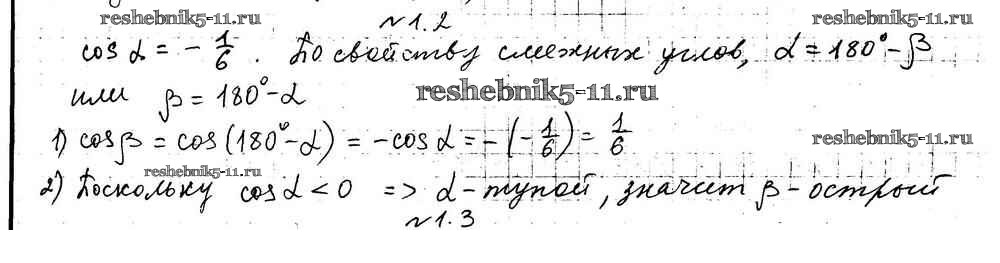 reshebnik5-11.ru
reshebnik5-11.ru
№1.2
cos α = - 1/6. По свойству смежных углов, α = 180° - β
или β = 180° - α
reshebnik5-11.ru
1) cos β = cos (180° - α) = - cos α = - (- 1/6) = 1/6
reshebnik5-11.ru
reshebnik5-11.ru
2) Поскольку cos α < 0 => α - тупой, значит β - острый
№1.3
reshebnik5-11.ru